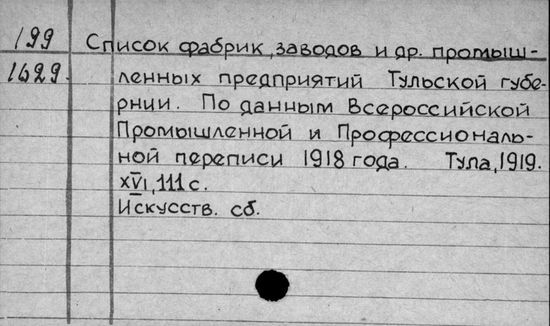 199 Список фабрик, заводов и др. промыш-
1629. ленных предприятий Тульской губе-
рнии. По данным Всероссийской
Промышленной и Профессиональ-
ной переписи 1918 года. Тула, 1919.
XVI, 111 с.
Искусств. сб.